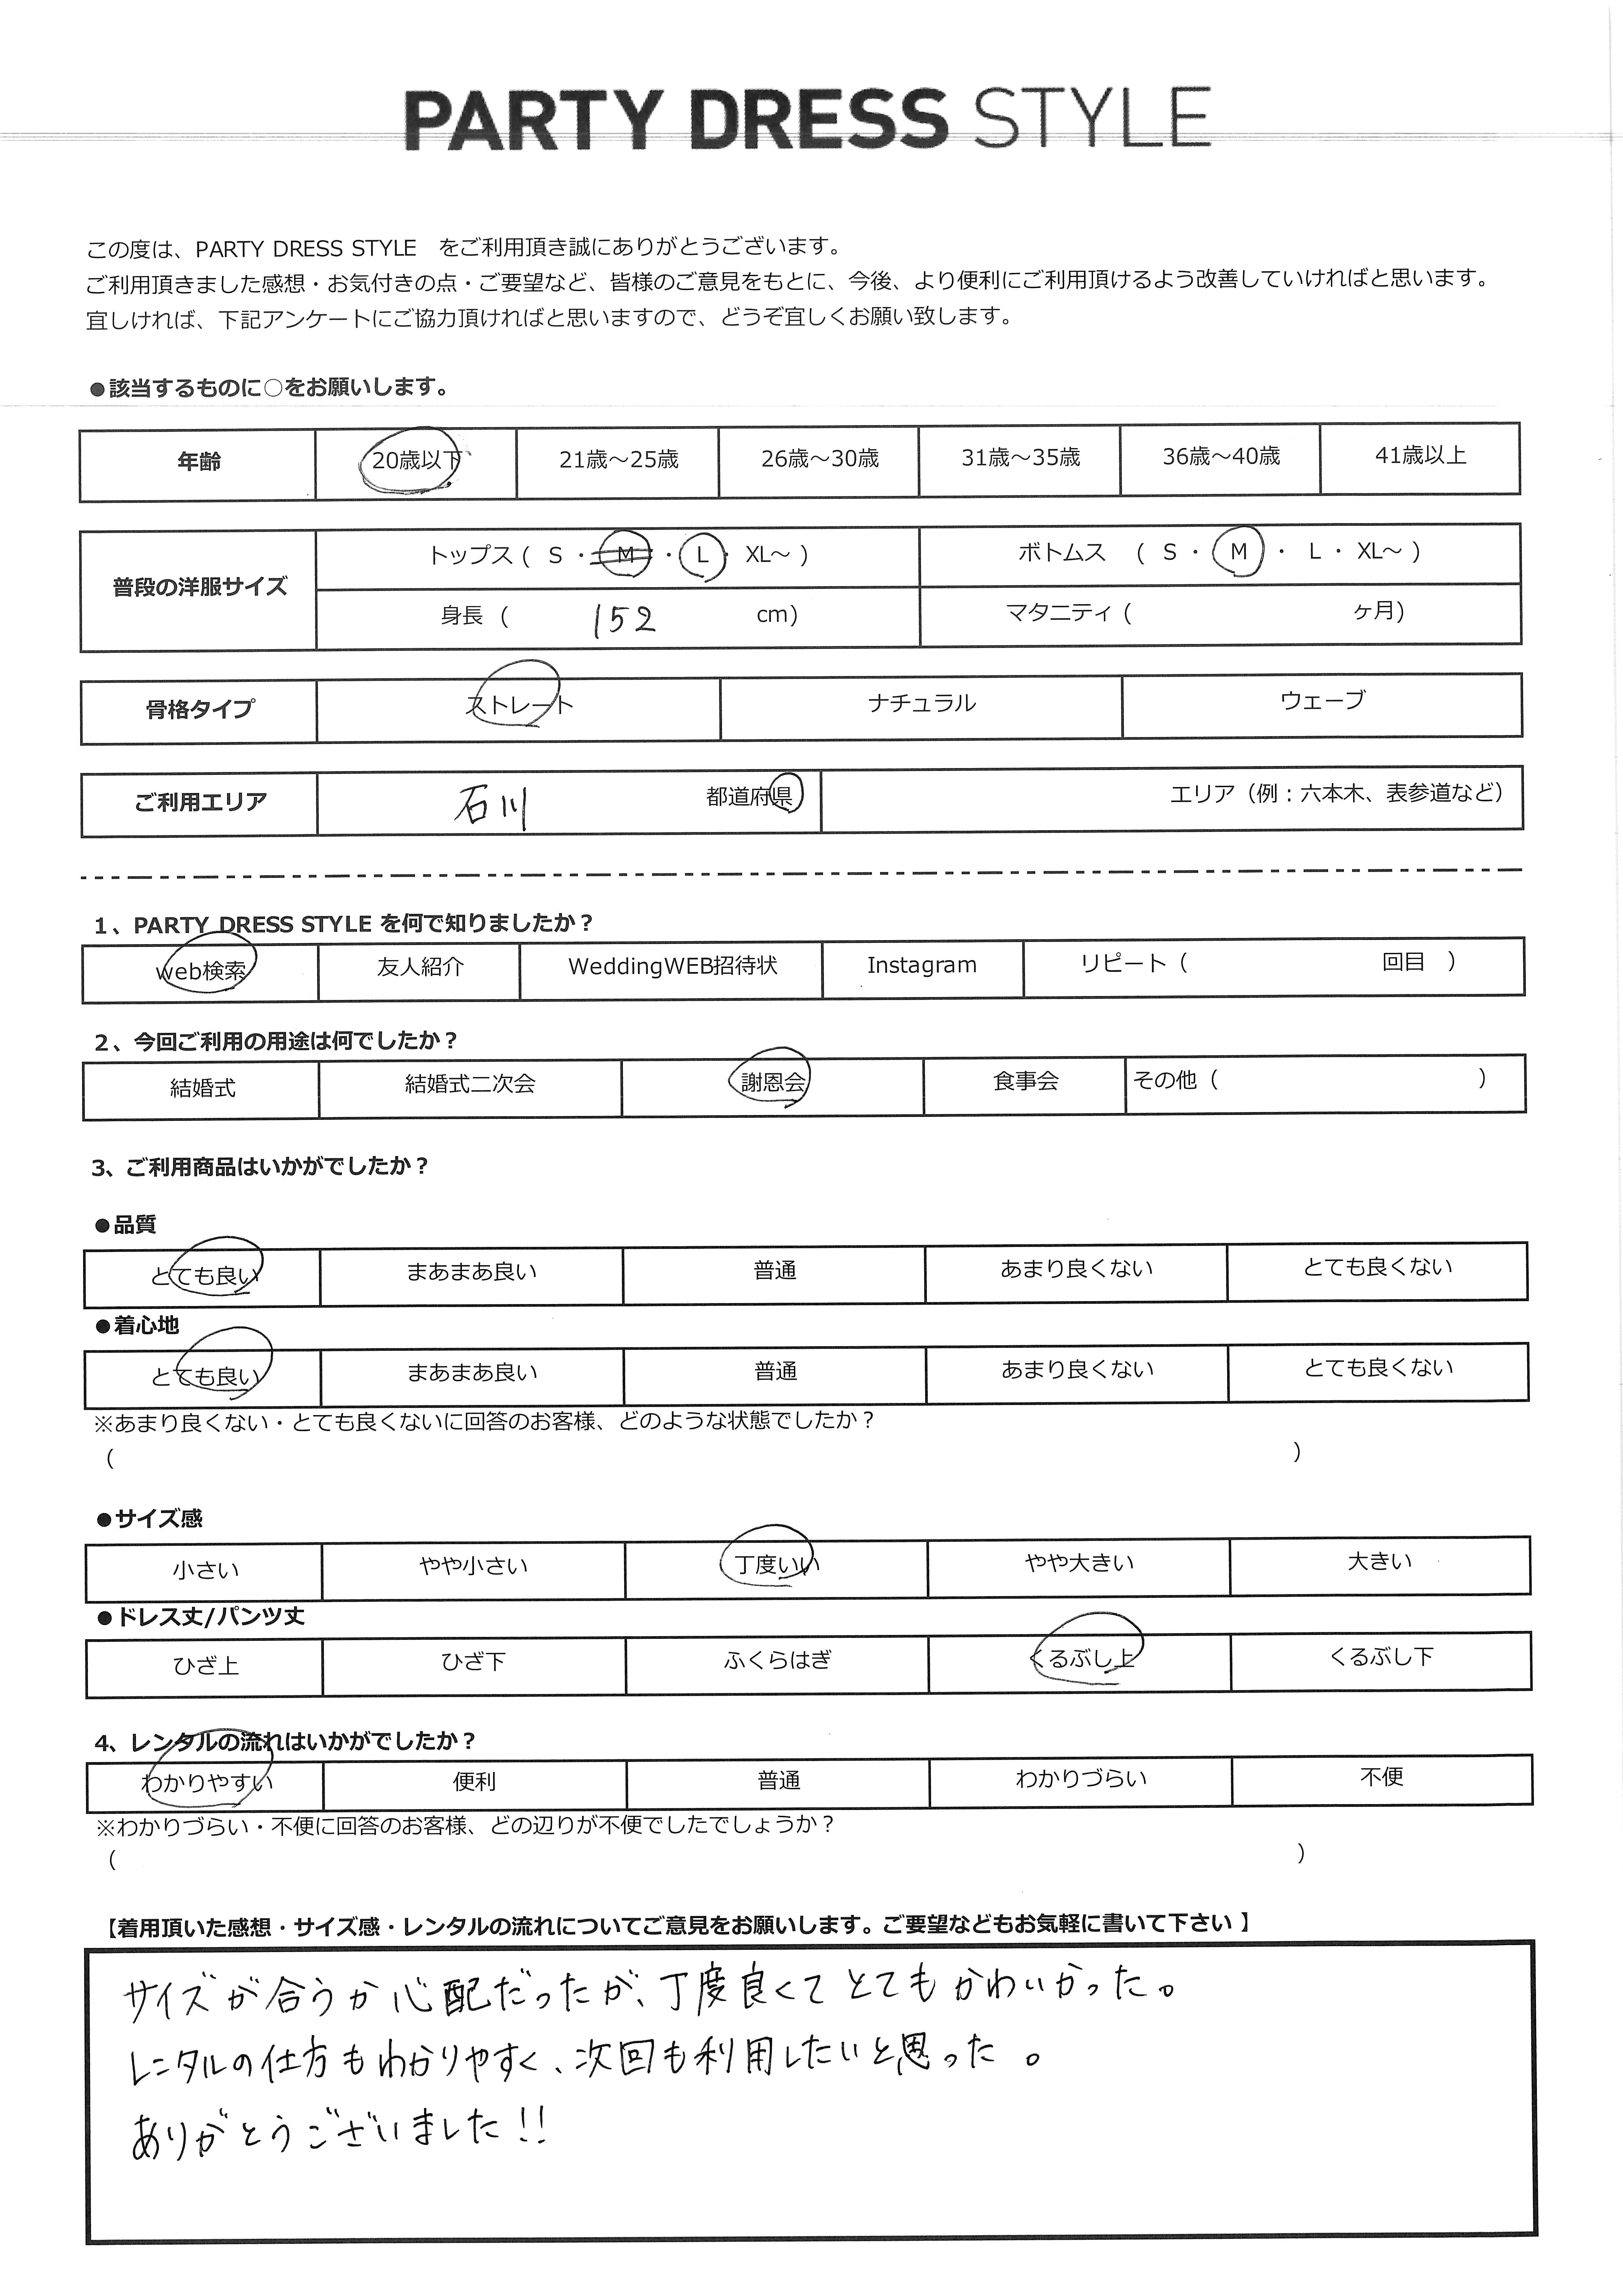 PARTY DRESS STYLE
この度は、PARTY DRESS STYLE　をご利用頂き誠にありがとうございます。
ご利用頂きました感想・お気付きの点・ご要望など、皆様のご意見をもとに、今後、より便利にご利用頂けるよう改善していければと思います。
宜しければ、下記アンケートにご協力頂ければと思いますので、どうぞ宜しくお願い致します。
●該当するものに○をお願いします。
年齢 20歳以下 21歳～25歳 26歳～30歳 31歳～35歳 36歳～40歳 41歳以上
普段の洋服サイズ トップス ( S ・ M ・ L ・ XL～ ) ボトムス ( S ・ M ・ L ・ XL～ )
身長 ( 152 cm) マタニティ ( ヶ月)
骨格タイプ ストレート ナチュラル ウェーブ
ご利用エリア 石川 都道府県 エリア（例：六本木、表参道など）
1、PARTY DRESS STYLE を何で知りましたか？
web検索 友人紹介 WeddingWEB招待状 Instagram リピート（ 回目 ）
2、今回ご利用の用途は何でしたか？
結婚式 結婚式二次会 謝恩会 食事会 その他（ ）
3、ご利用商品はいかがでしたか？
●品質
とても良い まあまあ良い 普通 あまり良くない とても良くない
●着心地
とても良い まあまあ良い 普通 あまり良くない とても良くない
※あまり良くない・とても良くないに回答のお客様、どのような状態でしたか？
（ ）
●サイズ感
小さい やや小さい 丁度いい やや大きい 大きい
●ドレス丈/パンツ丈
ひざ上 ひざ下 ふくらはぎ くるぶし上 くるぶし下
4、レンタルの流れはいかがでしたか？
わかりやすい 便利 普通 わかりづらい 不便
※わかりづらい・不便に回答のお客様、どの辺りが不便でしたでしょうか？
（ ）
【着用頂いた感想・サイズ感・レンタルの流れについてご意見をお願いします。ご要望などもお気軽に書いて下さい 】
サイズが合うか心配だったが、丁度良くてとてもかわいかった。
レンタルの仕方もわかりやすく、次回も利用したいと思った。
ありがとうございました!!